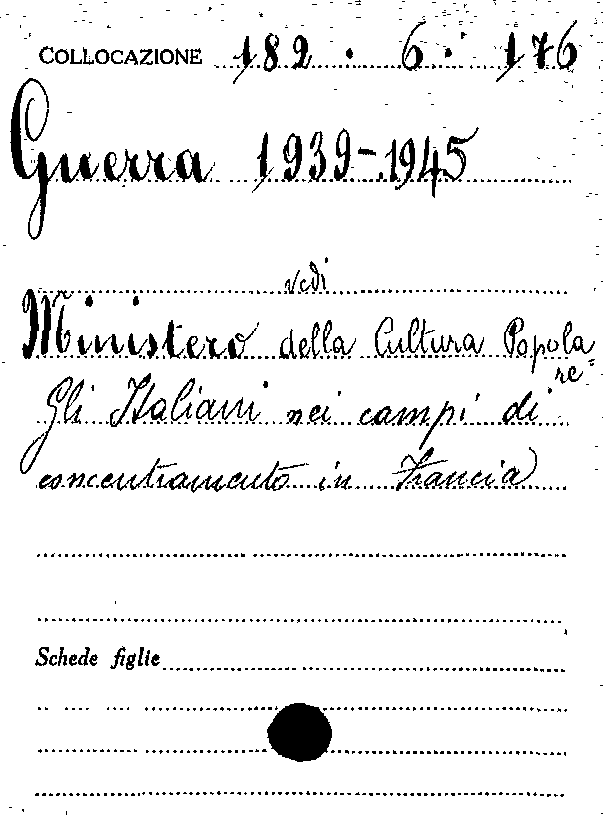 COLLOCAZIONE 182 . 6 . 176
Guerra 1939-1945
vedi
Ministero della Cultura Popola
re=
Gli Italiani nei campi di
concentramento in Francia
Schede figlie